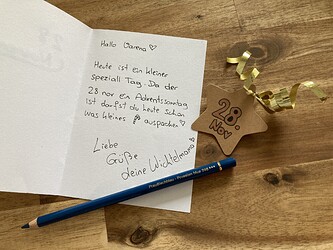 Hallo Verena ♡
Heute ist ein kleiner
speziell Tag. Da der
28 nov ein Adventssonntag
ist darfst du heute schon
was kleines auspacken ♡
Liebe
Grüße
deine Wichtelmama ♡
28.
Nov